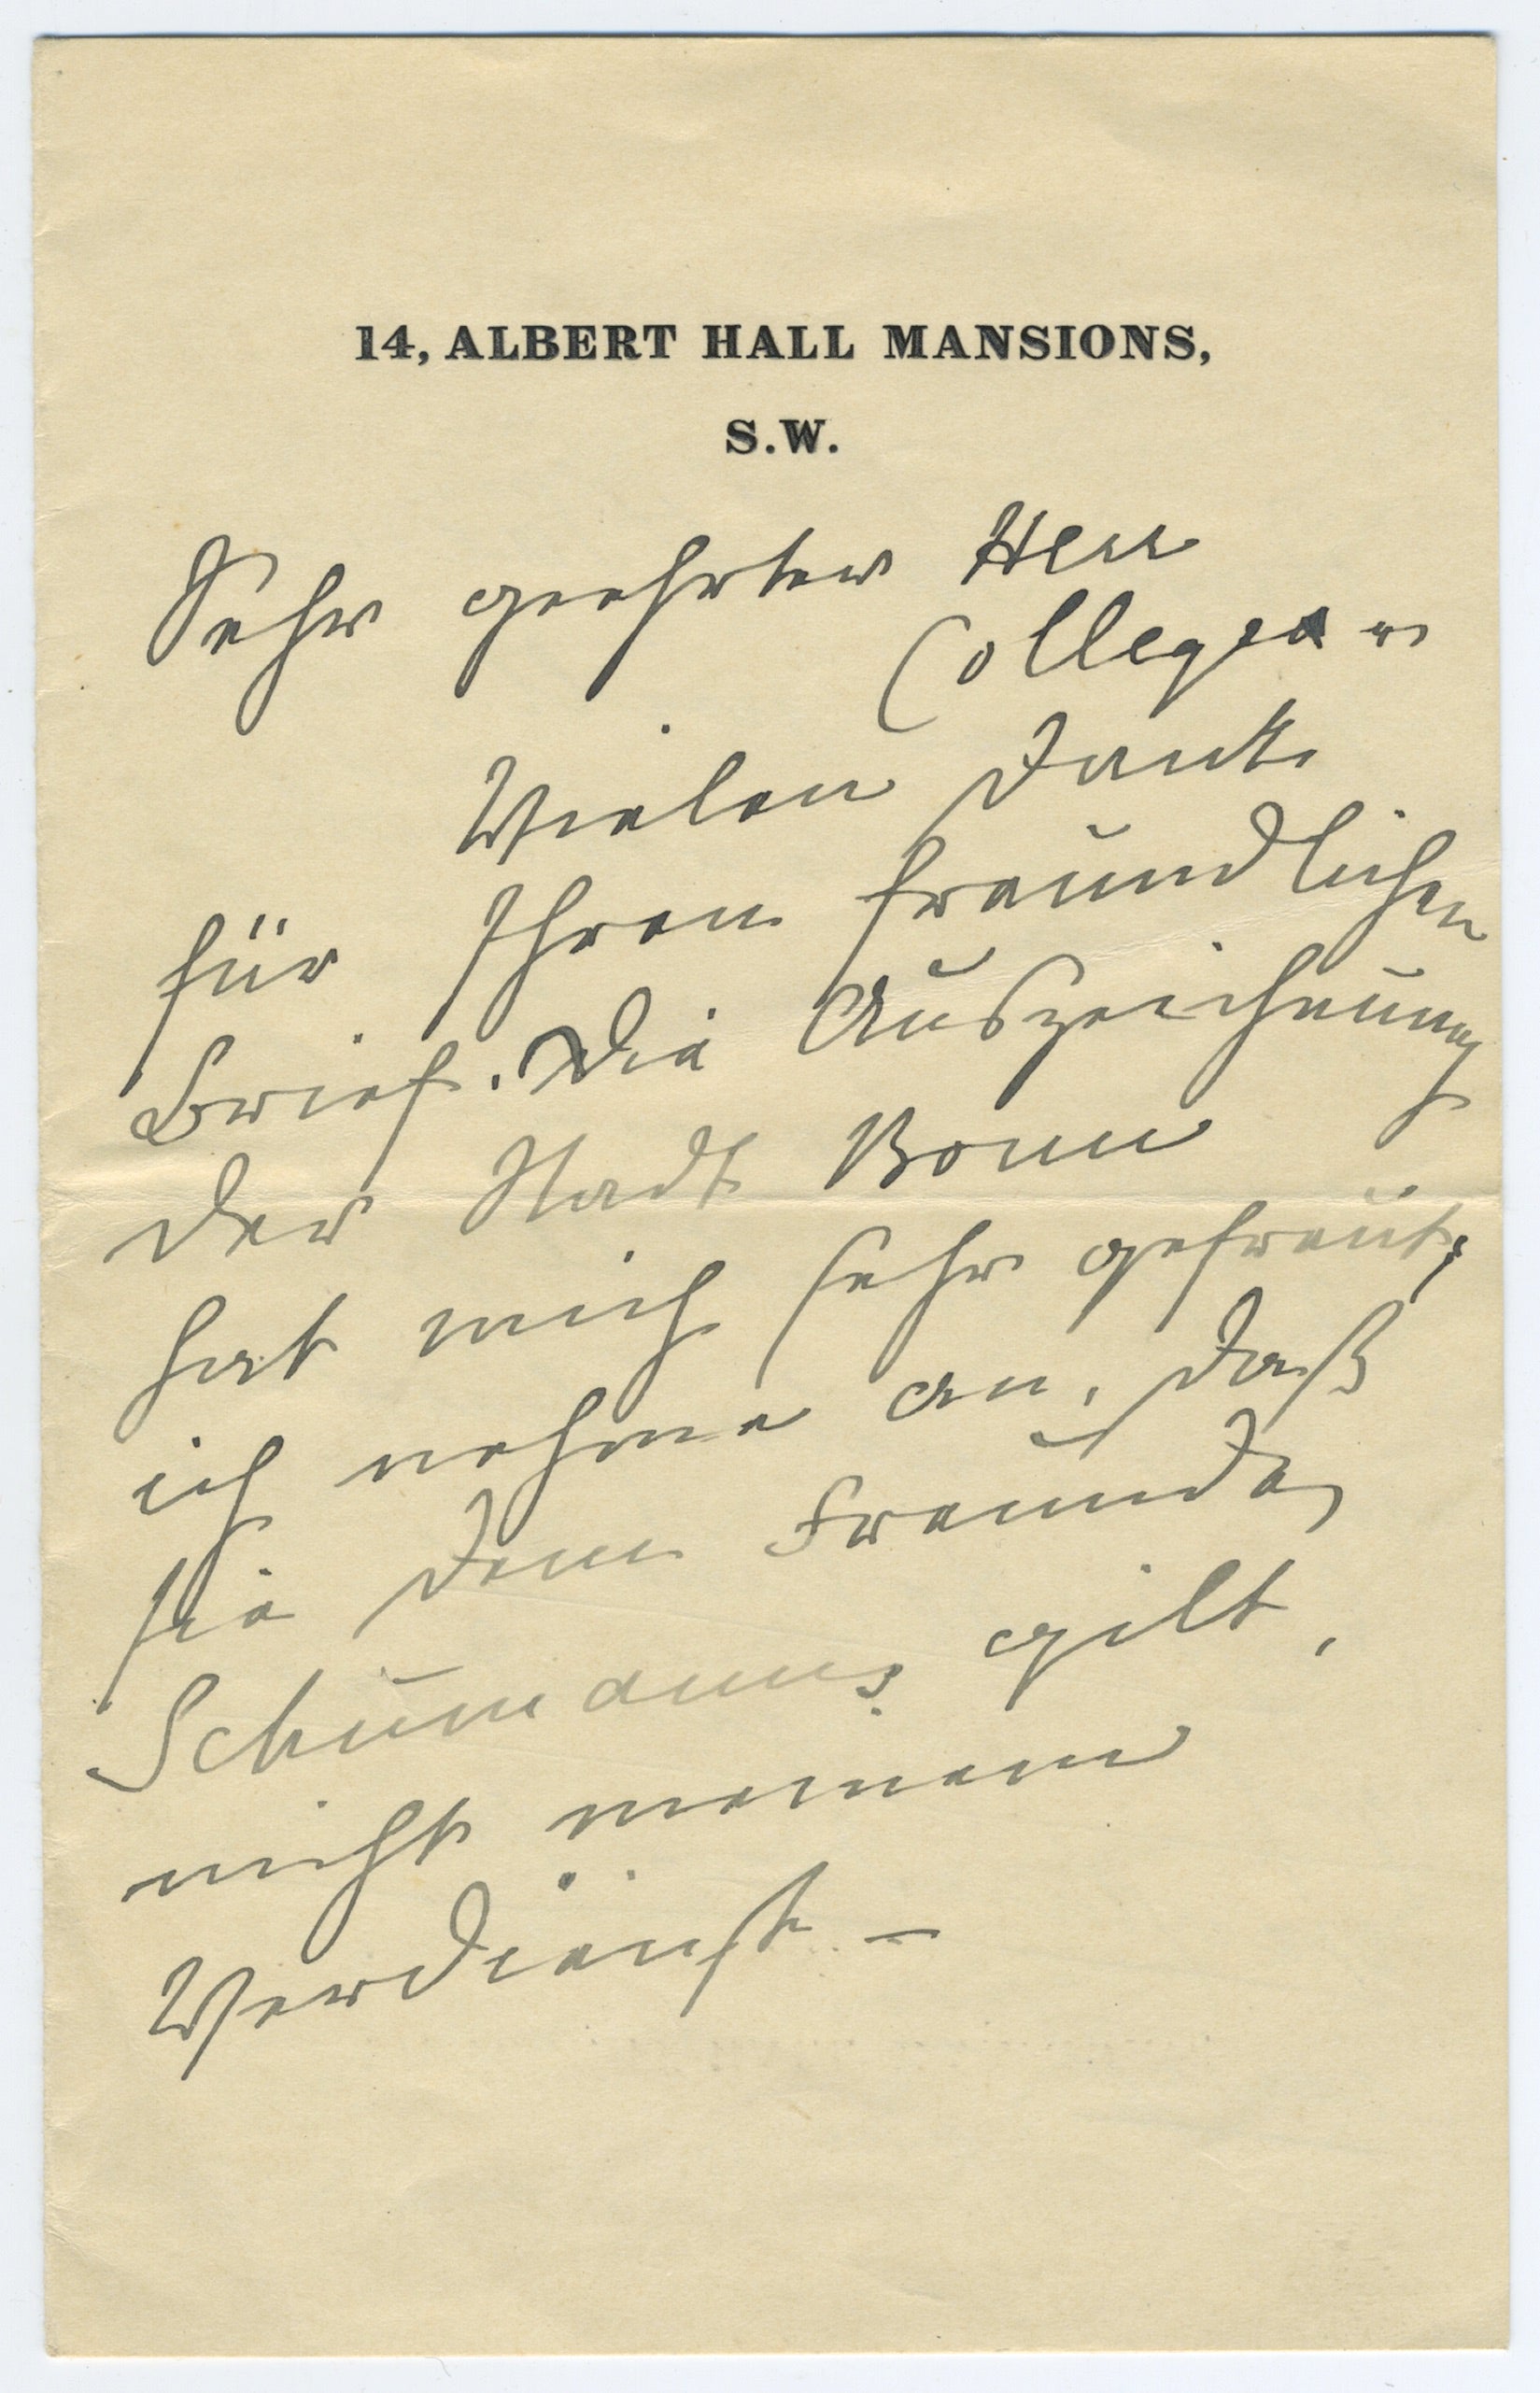 14, ALBERT HALL MANSIONS,
S.W.
Sehr geehrter Herr
College
Vielen Dank
für Ihren freundlichen
Brief. Die Auszeichnung
der Stadt Bonn
hat mich sehr gefreut;
ich nehme an, daß
sie dem Freunde
Schumanns gilt,
nicht meinem
Verdienst –